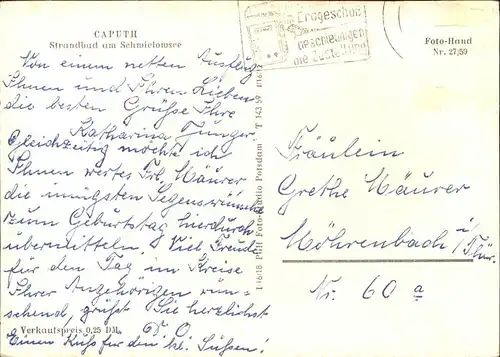 CAPUTH
Strandbad am Schwielowsee
Von einem netten Ausflug
Ihnen und Ihren Lieben
die besten Grüße Ihre
Katharina Junger
Gleichzeitig möchte ich
Ihnen wertes Frl. Mäurer
die innigsten Segenswünsche
zum Geburtstag hierdurch
übermitteln. Viel Freude
für den Tag im Kreise
Ihrer Angehörigen wün-
schend, grüßt Sie herzlichst
Verkaufspreis 0,25 DM
Einen Kuß für den kl. Süßen!
PGH Foto-Studio Potsdam T 143 59
Erdgeschoß
beschleunigen
die Zustellung
Foto-Hand
Nr. 27/59
Fräulein
Grethe Mäurer
Möhrenbach i/Thür.
Nr. 60 a